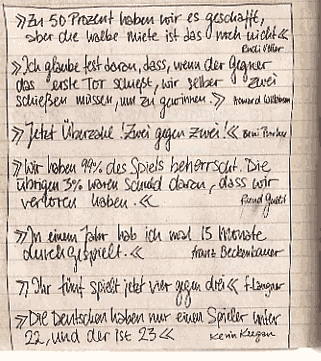 »Zu 50 Prozent haben wir es geschafft,
aber die halbe Miete ist das noch nicht« Rudi Völler
»Ich glaube fest daran, dass, wenn der Gegner
das erste Tor schießt, wir selber zwei
schießen müssen, um zu gewinnen.» Howard Wilkinson
»Jetzt Überzahl! Zwei gegen zwei!«
»Wir haben 99% des Spiels beherrscht. Die
übrigen 3% waren schuld daran, dass wir
verloren haben.« Ruud Gullit
»In einem Jahr hab ich mal 15 Monate
durchgespielt.« Franz Beckenbauer
»Ihr fünf spielt jetzt vier gegen drei« F. Langner
»Die Deutschen haben nur einen Spieler unter
22, und der ist 23« Kevin Keegan